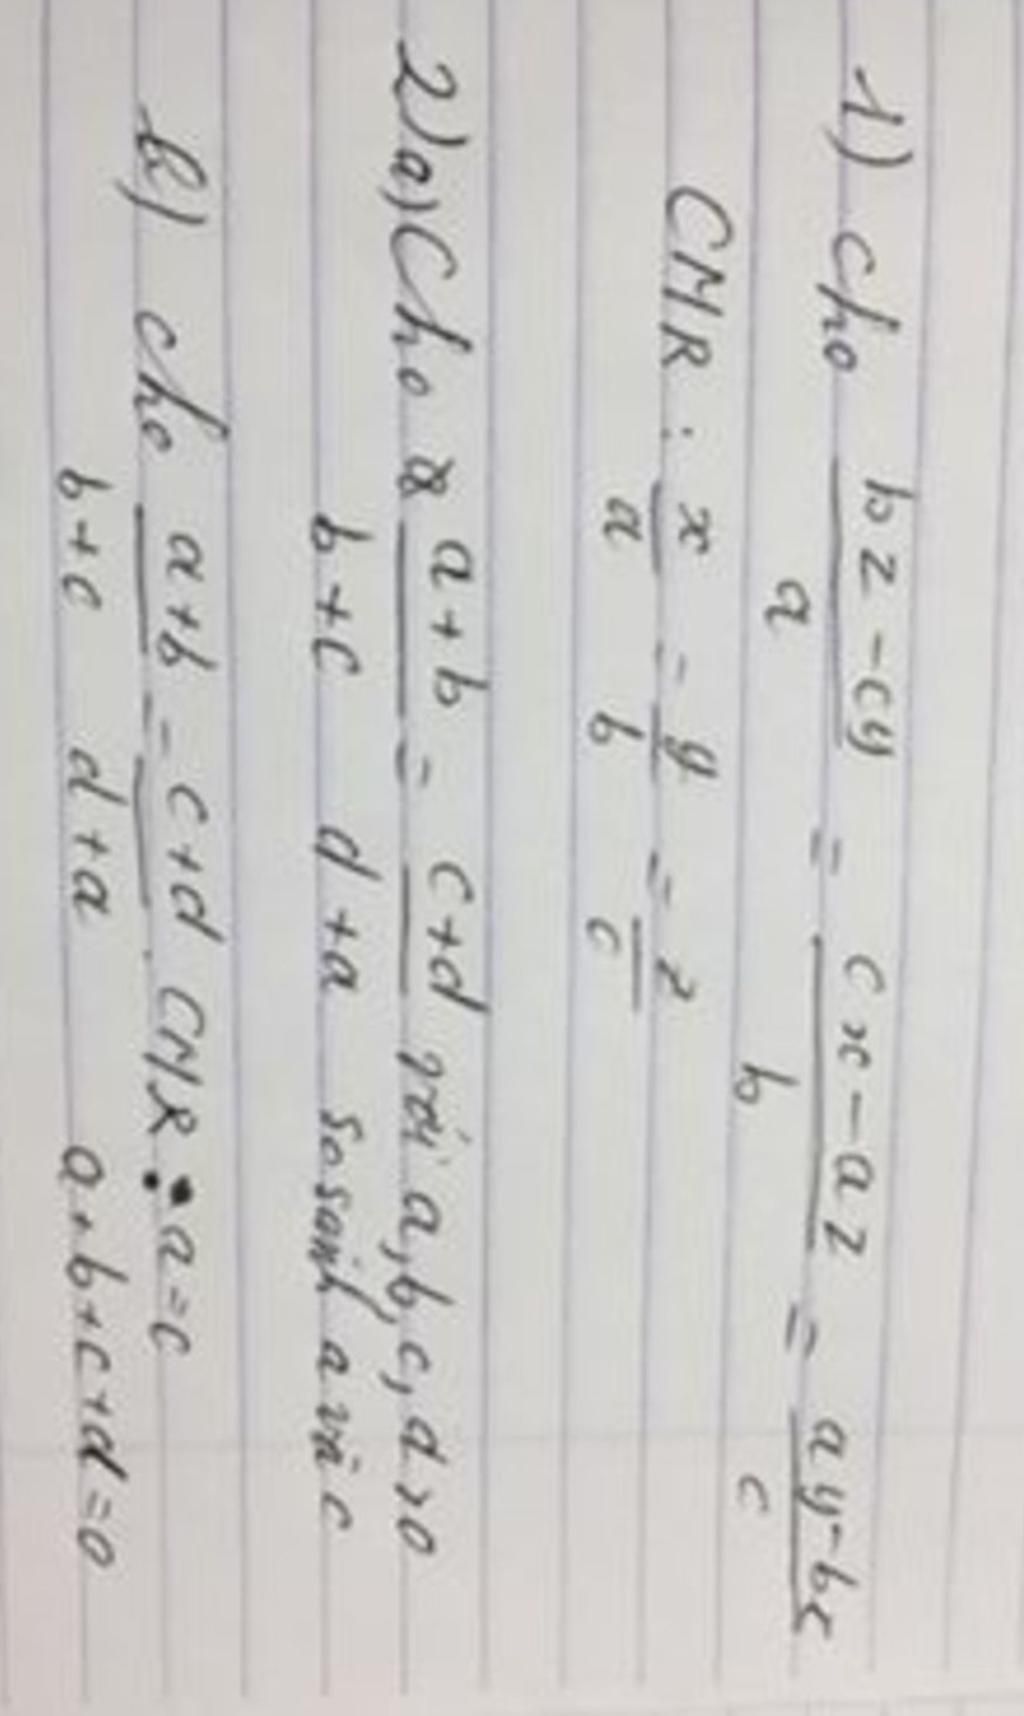 1) Cho bz-cy/a = cx-az/b = ay-bx/c
CMR: x/a = y/b = z/c
2) a) Cho a+b/b+c = c+d/d+a với a,b,c,d>0
So sánh a và c
b) Cho a+b/b+c = c+d/d+a. CMR: a=c
a+b+c+d=0